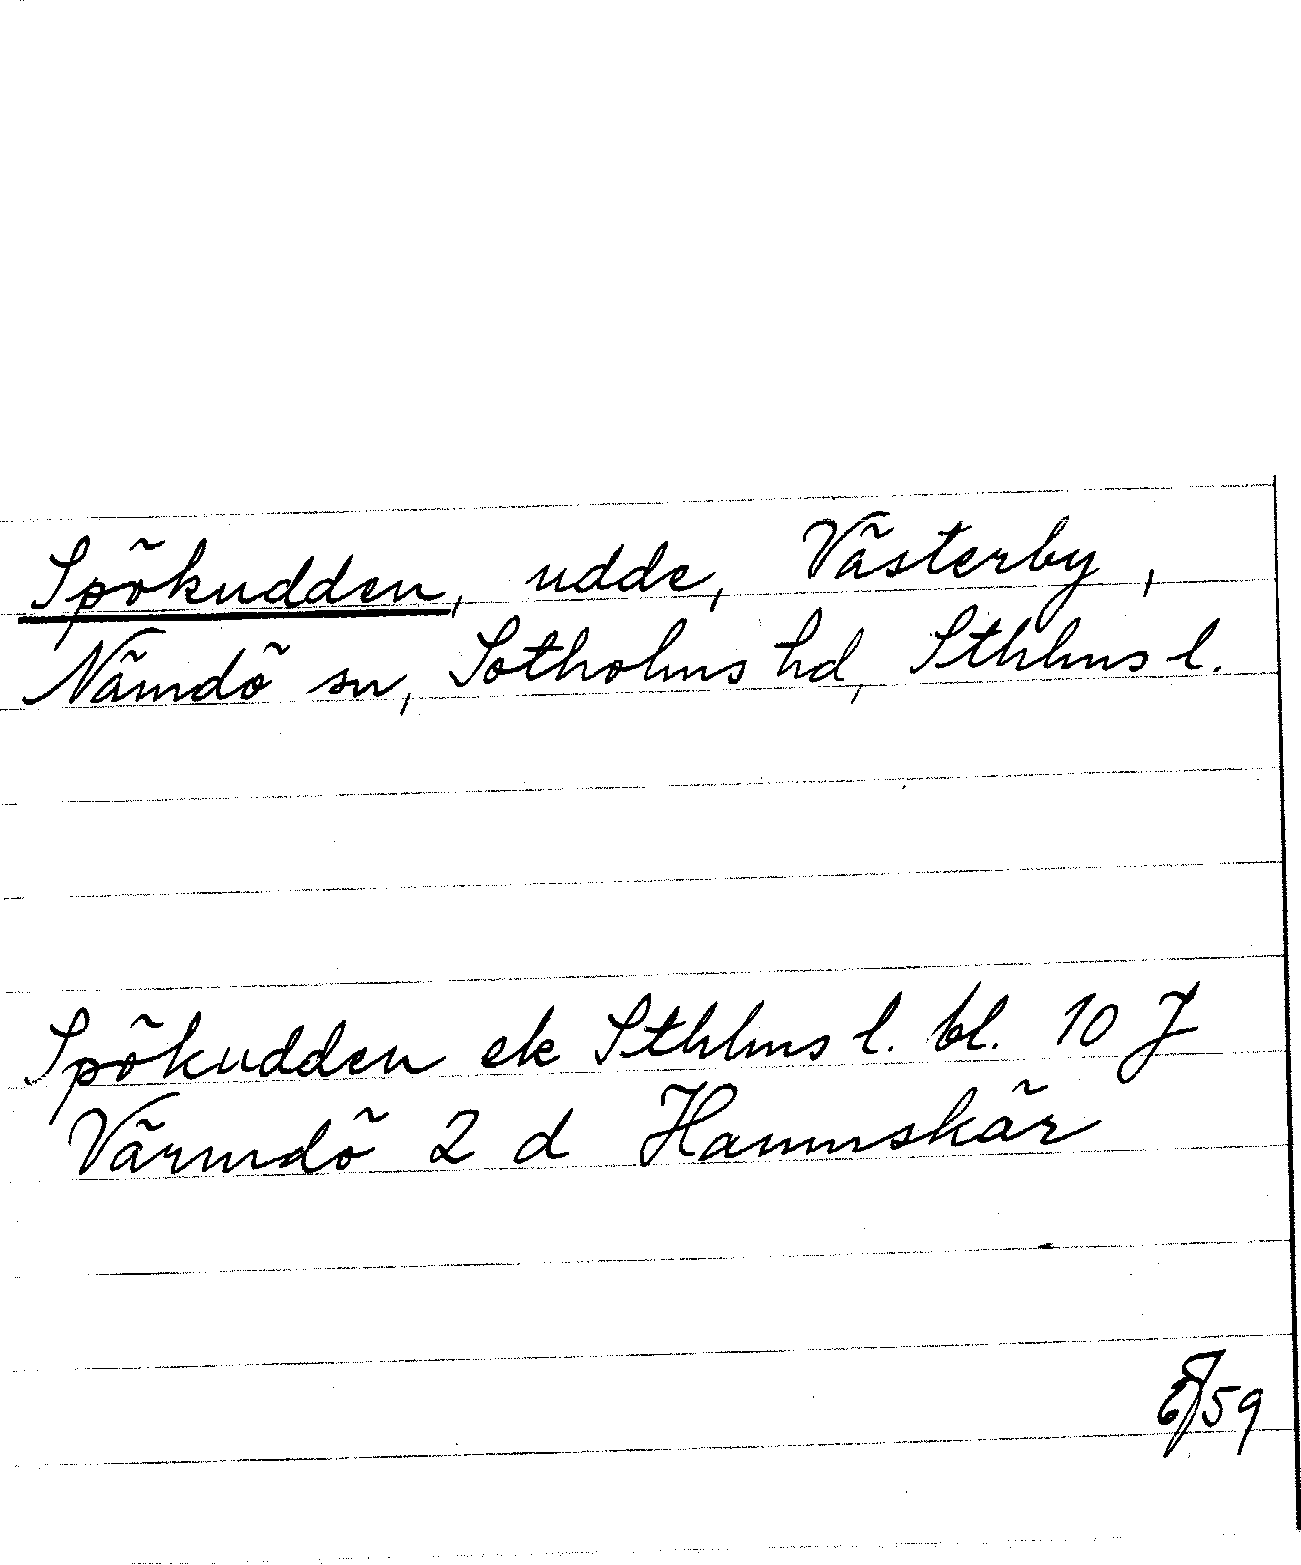 Spökudden, udde, Västerby,
Nämdö sn, Sotholms hd, Sthlms l.
Spökudden ek Sthlms l. bl. 10 J
Värmdö 2 d Hammskär
/59